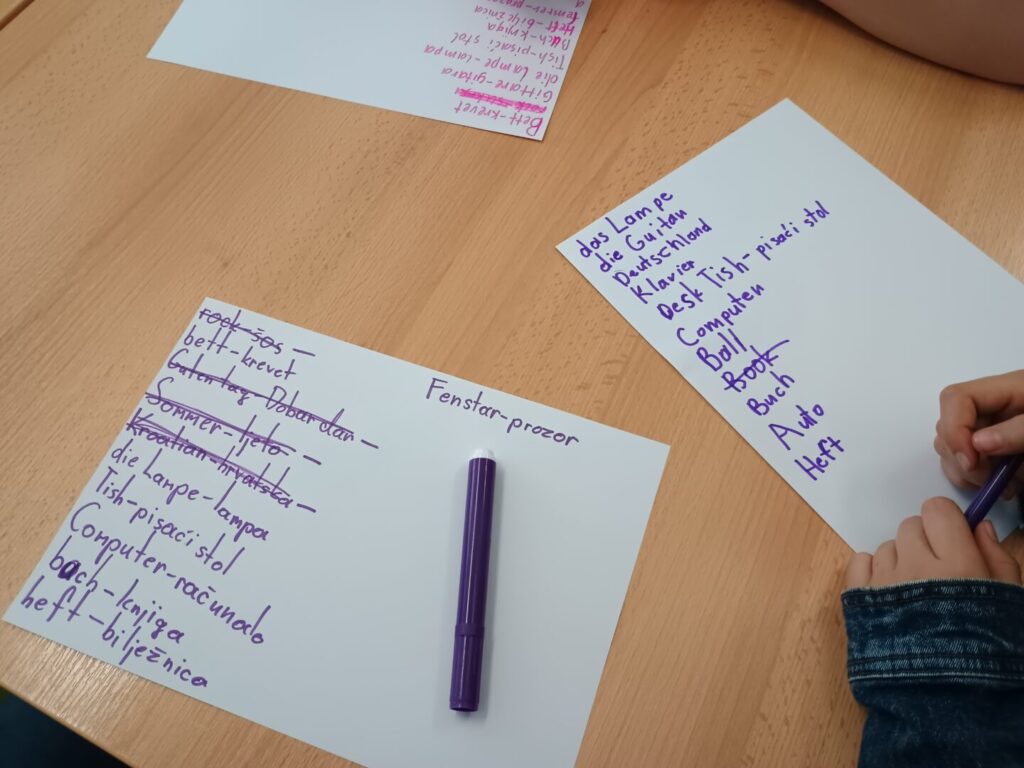 Bett-krevet
Gittare-gitara
die Lampe-Lampa
Tish-pisaći stol
Buch-knjiga
Heft-bilježnica
rock-šos -
bett-krevet
Guten tag-Dobar dan -
Sommer-ljeto -
Kroatian-hrvatska -
die Lampe-lampa
Tish-pisaći stol
Computer-računalo
buch-knjiga
heft-bilježnica
Fenstar-prozor
das Lampe
die Guitan
Deutschlond
Klavier
Desk Tish-pisaći stol
Computen
Boll
Book
Buch
Auto
Heft